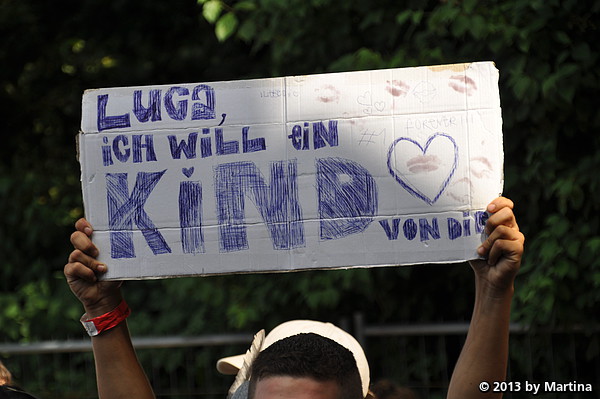 LUCA,
ICH WILL EIN
#1 FOREVER!!!
KIND
VON DIR
© 2013 by Martina